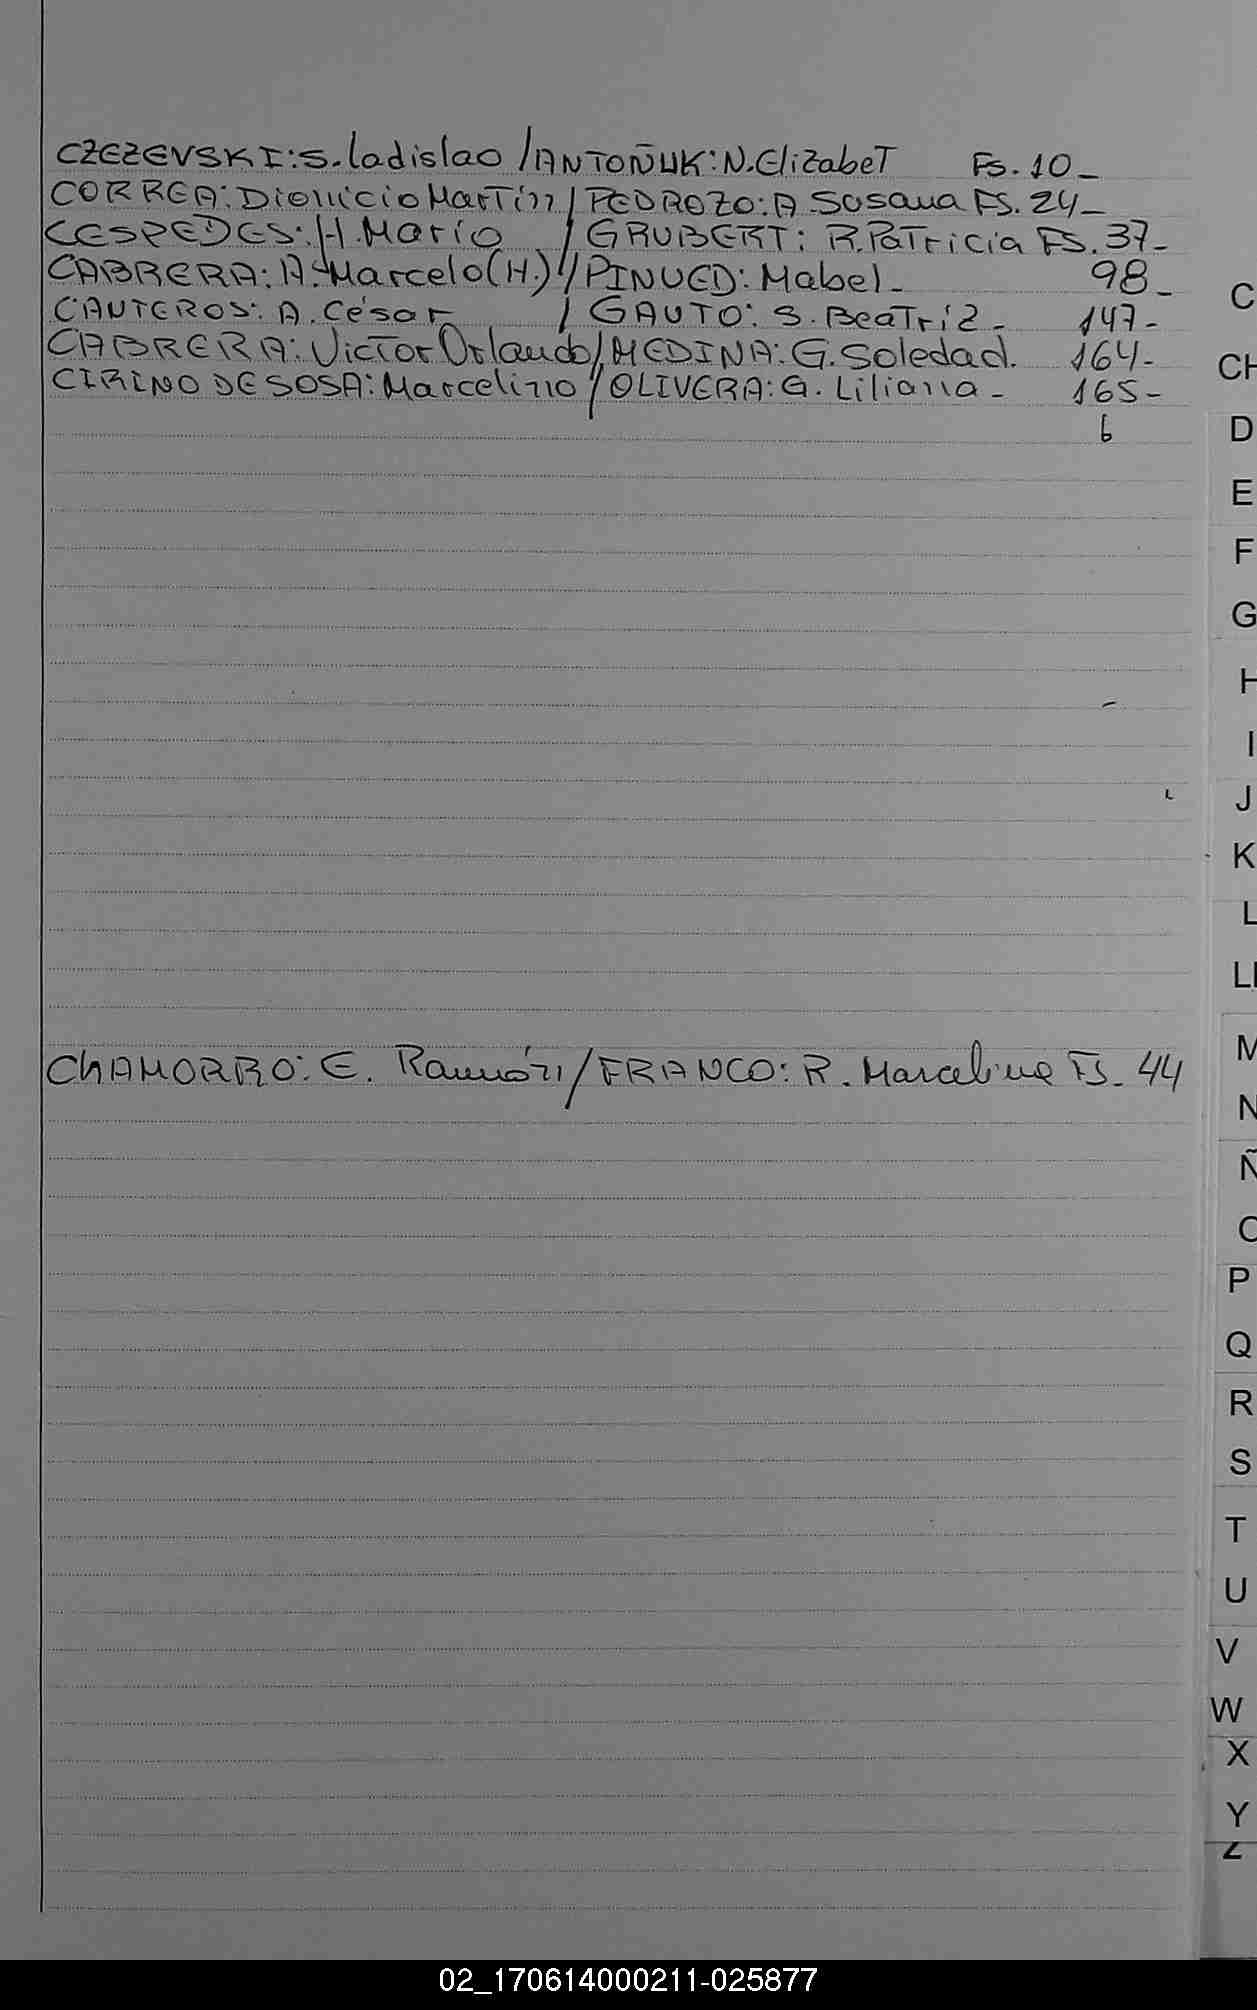 CZEZEVSKI: S. Ladislao / ANTOÑUK: N. ElizabeT Fs. 10 -
CORREA: Dionicio MarTín / PEDROZO: A. Susana FS. 24 -
CESPEDES: H. Mario / GRUBERT: R. PaTricia FS. 37 -
CABRERA: A. Marcelo (H.) / PINUED: Mabel - 98 -
CAUTEROS: A. César / GAUTO: S. BeaTríz - 147 -
CABRERA: VicTor Orlando / MEDINA: G. Soledad. 164 -
CIRINO DE SOSA: Marcelino / OLIVERA: G. Liliana - 165 -
6
CHAMORRO: E. Ramón / FRANCO: R. Marcelina FS. 44
C
CH
D
E
F
G
H
I
J
K
L
Ll
M
N
Ñ
O
P
Q
R
S
T
U
V
W
X
Y
Z
02_170614000211-025877